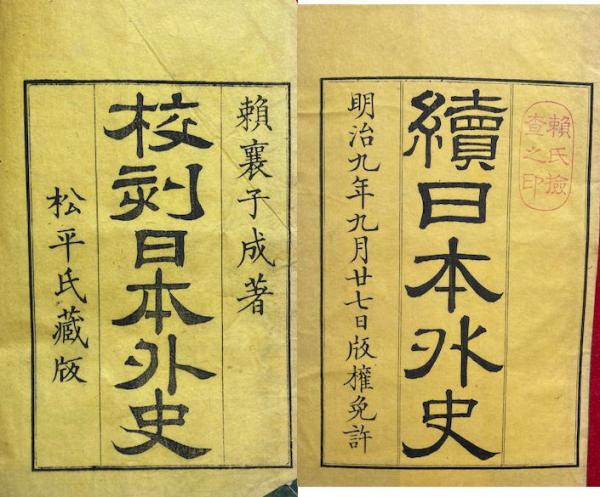 賴襄子成著
校刻日本外史
松平氏藏版
賴氏撿
查之印
續日本外史
明治九年九月廿七日版權免許